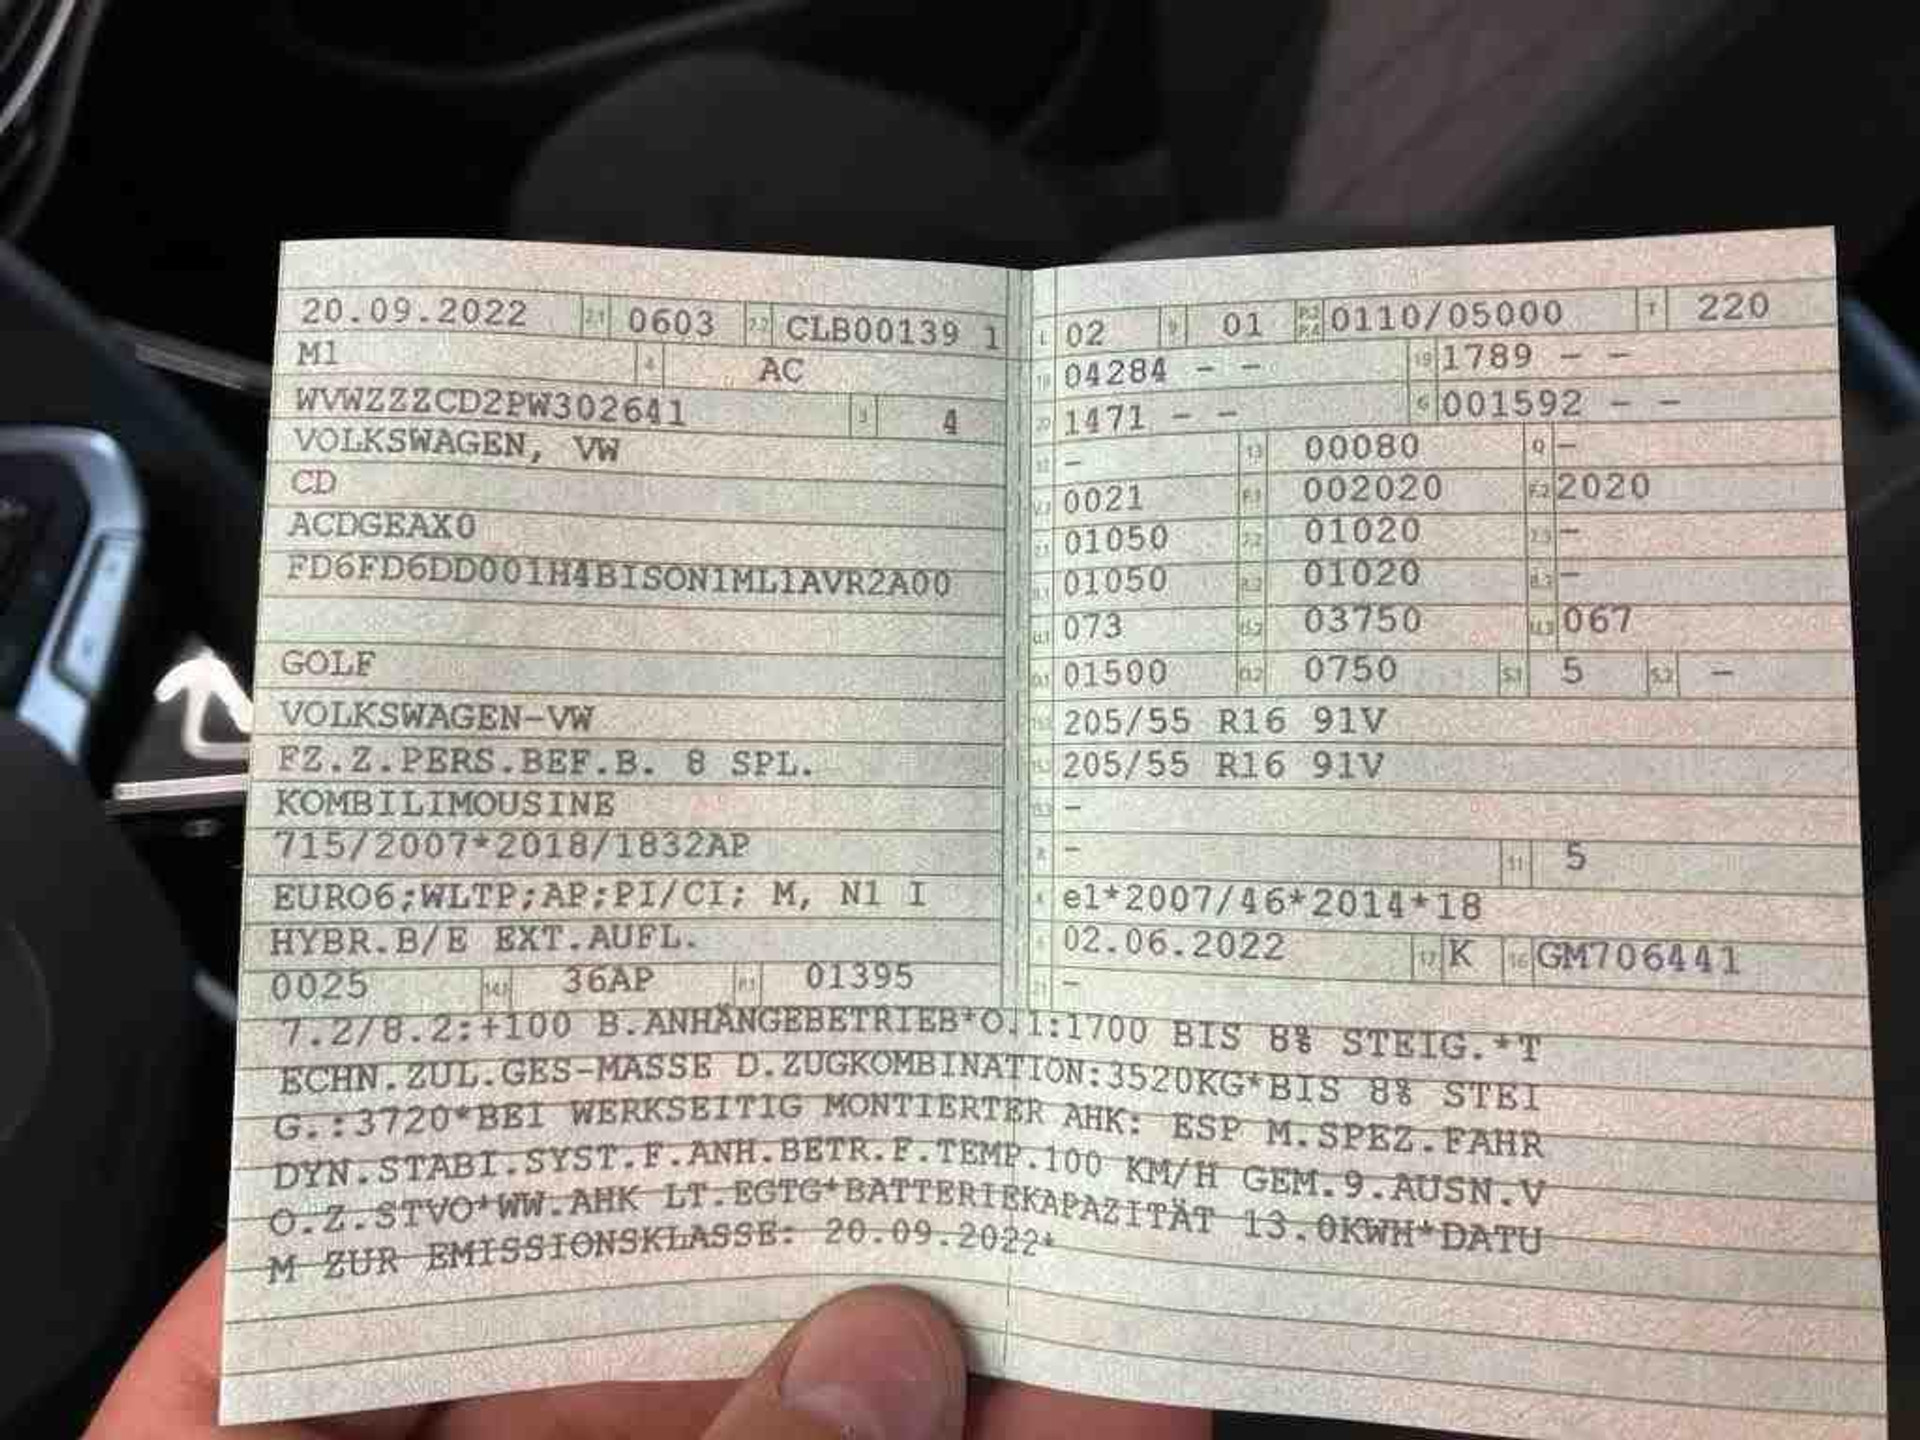 20.09.2022 2.1 0603 2.2 CLB00139 1
M1 4 AC
WVWZZZCD2PW302641 3 4
VOLKSWAGEN, VW
CD
ACDGEAX0
FD6FD6DD001H4BISON1ML1AVR2A00
GOLF
VOLKSWAGEN-VW
FZ.Z.PERS.BEF.B. 8 SPL.
KOMBILIMOUSINE
715/2007*2018/1832AP
EURO6;WLTP;AP;PI/CI; M, N1 I
HYBR.B/E EXT.AUFL.
0025 14.1 36AP P.1 01395
L 02 9 01 P.2 P.4 0110/05000 T 220
18 04284 - - 19 1789 - -
20 1471 - - G 001592 - -
12 - 13 00080 Q -
V.7 0021 F.1 002020 F.2 2020
7.1 01050 7.2 01020 7.3 -
8.1 01050 8.2 01020 8.3 -
U.1 073 U.2 03750 U.3 067
O.1 01500 O.2 0750 S.1 5 S.2 -
15.1 205/55 R16 91V
15.2 205/55 R16 91V
15.3 -
R - 11 5
K e1*2007/46*2014*18
6 02.06.2022 17 K 16 GM706441
21 -
7.2/8.2:+100 B.ANHÄNGEBETRIEB*O.1:1700 BIS 8% STEIG.*T
ECHN.ZUL.GES-MASSE D.ZUGKOMBINATION:3520KG*BIS 8% STEI
G.:3720*BEI WERKSEITIG MONTIERTER AHK: ESP M.SPEZ.FAHR
DYN.STABI.SYST.F.ANH.BETR.F.TEMP.100 KM/H GEM.9.AUSN.V
O.Z.STVO*WW.AHK LT.EGTG*BATTERIEKAPAZITÄT 13.0KWH*DATU
M ZUR EMISSIONSKLASSE: 20.09.2022*